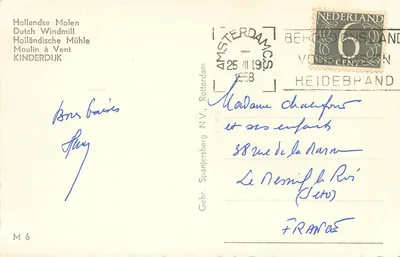 Hollandse Molen
Dutch Windmill
Holländische Mühle
Moulin à Vent
KINDERDIJK
Bons baisers
M 6
Gebr. Spanjersberg N.V., Rotterdam
AMSTERDAM C.S.
25 VII 19
1958
NEDERLAND
6
CENT
HEIDEBRAND
Madame
et ses enfants
38 rue de la Marne
Le Mesnil le Roi
(S et O)
FRANCE